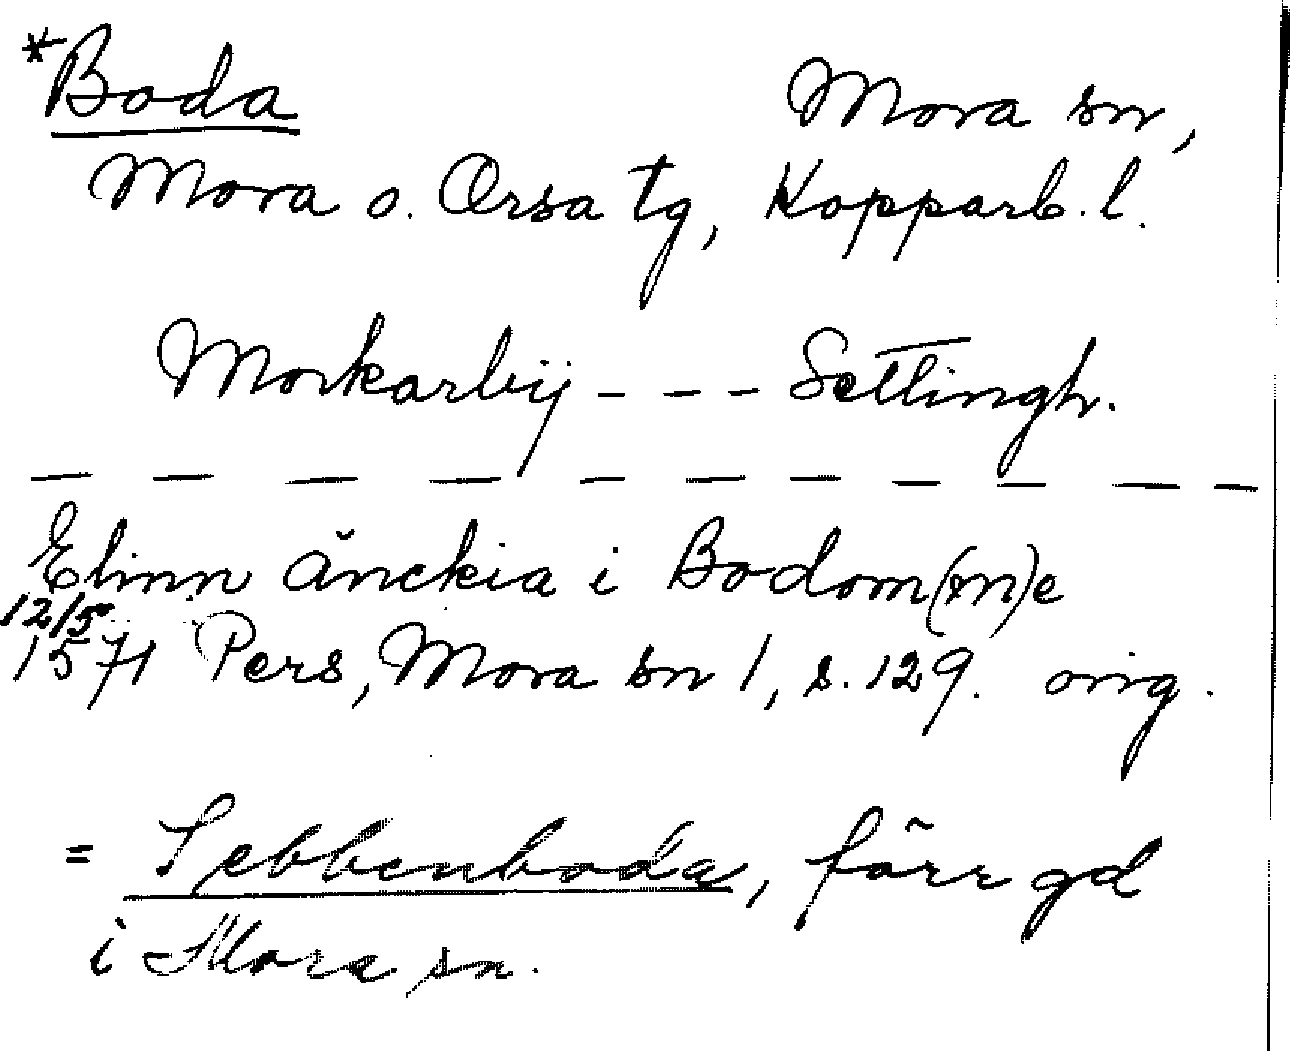 *Boda Mora sn,
Mora o. Orsa tg, Kopparb. l.
Morkarbÿ - - - Settingh.
— — — — — — — — — — —
Elinn Änckia i Bodom(m)e
12/5
1571 Pers, Mora sn 1, s. 129. orig.
= Sebbenboda, förr gd
i Mora sn.